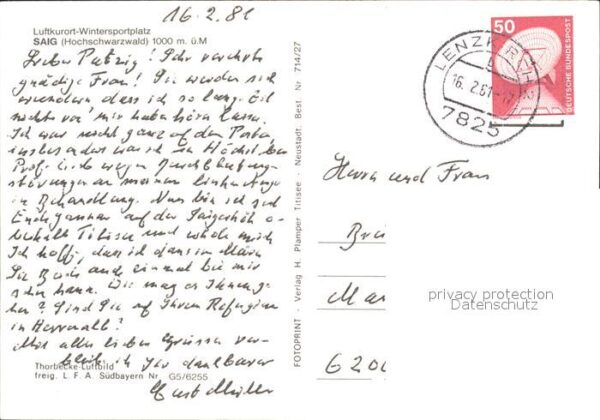 16.2.81
Luftkurort-Wintersportplatz
SAIG (Hochschwarzwald) 1000 m. ü.M
Lieber Patzig! Sehr verehrte
gnädige Frau! Sie werden sich
wundern dass ich so lang. Zeit
nichts von mir habe hören lassen.
Ich war nicht ganz auf dem Posten
insbesondere war ich in Höchst bei
Prof. wegen Durchblutungs-
störungen an meinem linken Auge
in Behandlung. Nun bin ich seit
Ende Januar auf der Saigerhöh o-
berhalb Titisee und erhole mich
Ich hoffe, dass ich dann im März
Sie Beide auch einmal bei mir
sehen kann. Wie mag es Ihnen ge-
hen? Sind Sie auf Ihrem Refugium
in Herrenalb?
Mit allen lieben Grüssen ver-
bleib ich Ihr dankbarer
Curt Müller
Thorbecke-Luftbild
freig. L. F. A Südbayern Nr. G5/6255
FOTOPRINT - Verlag H. Plamper Titisee - Neustadt. Best Nr 714/27
50
DEUTSCHE BUNDESPOST
LENZKIRCH
16.2.81
7825
Herrn und Frau
Bre
Mar
6200
privacy protection
Datenschutz